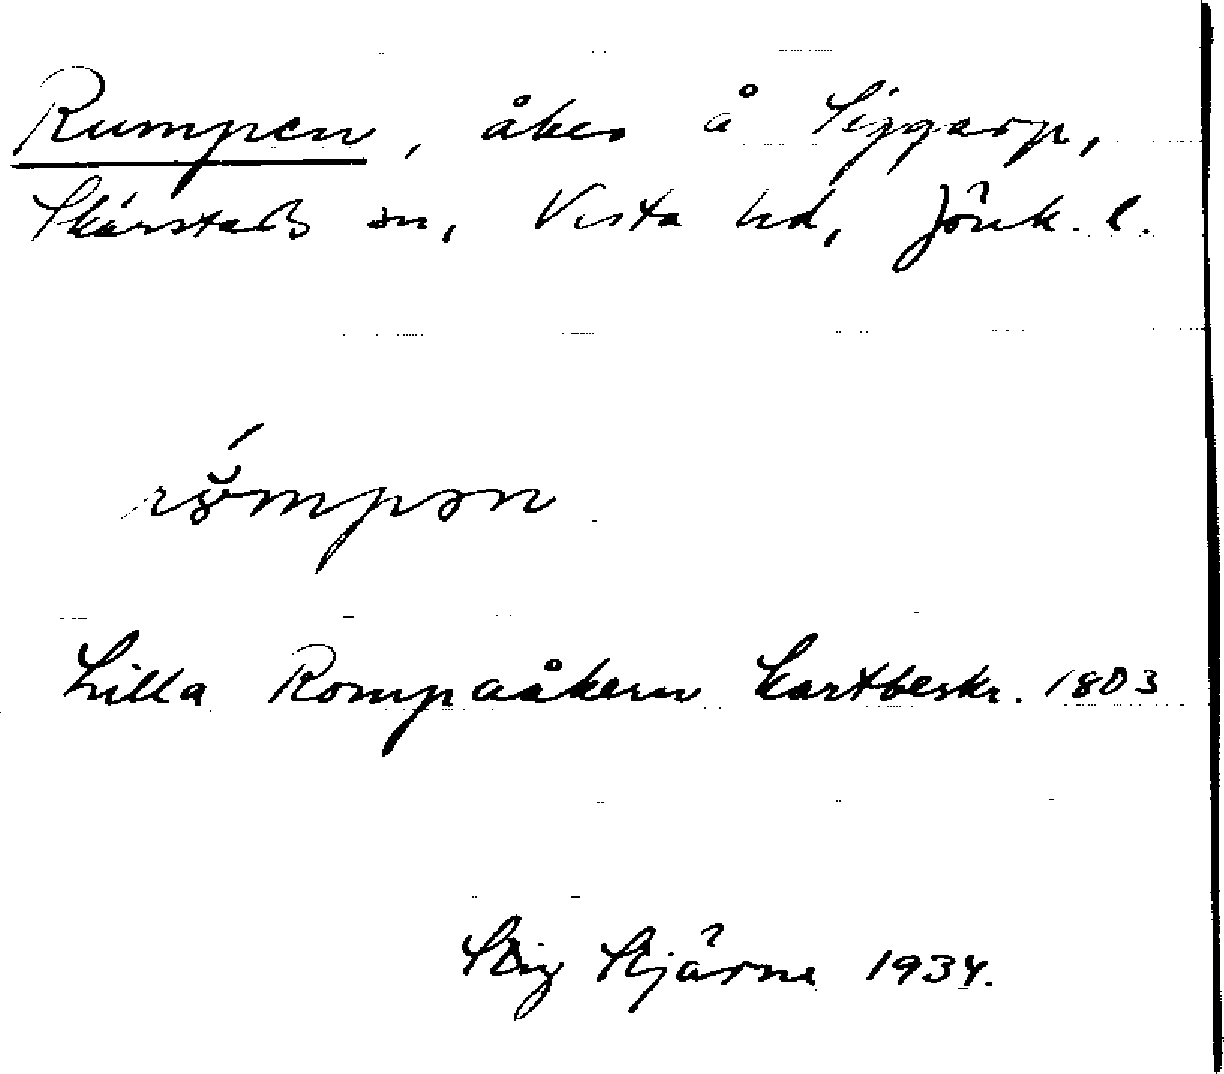 Rumpen, åker å Siggarp,
Skärstads sn, Vista hd, Jönk. l.
rŏ́mpən
Lilla Rompaåkern Kartbeskr. 1803
Stig Stjärne 1934.